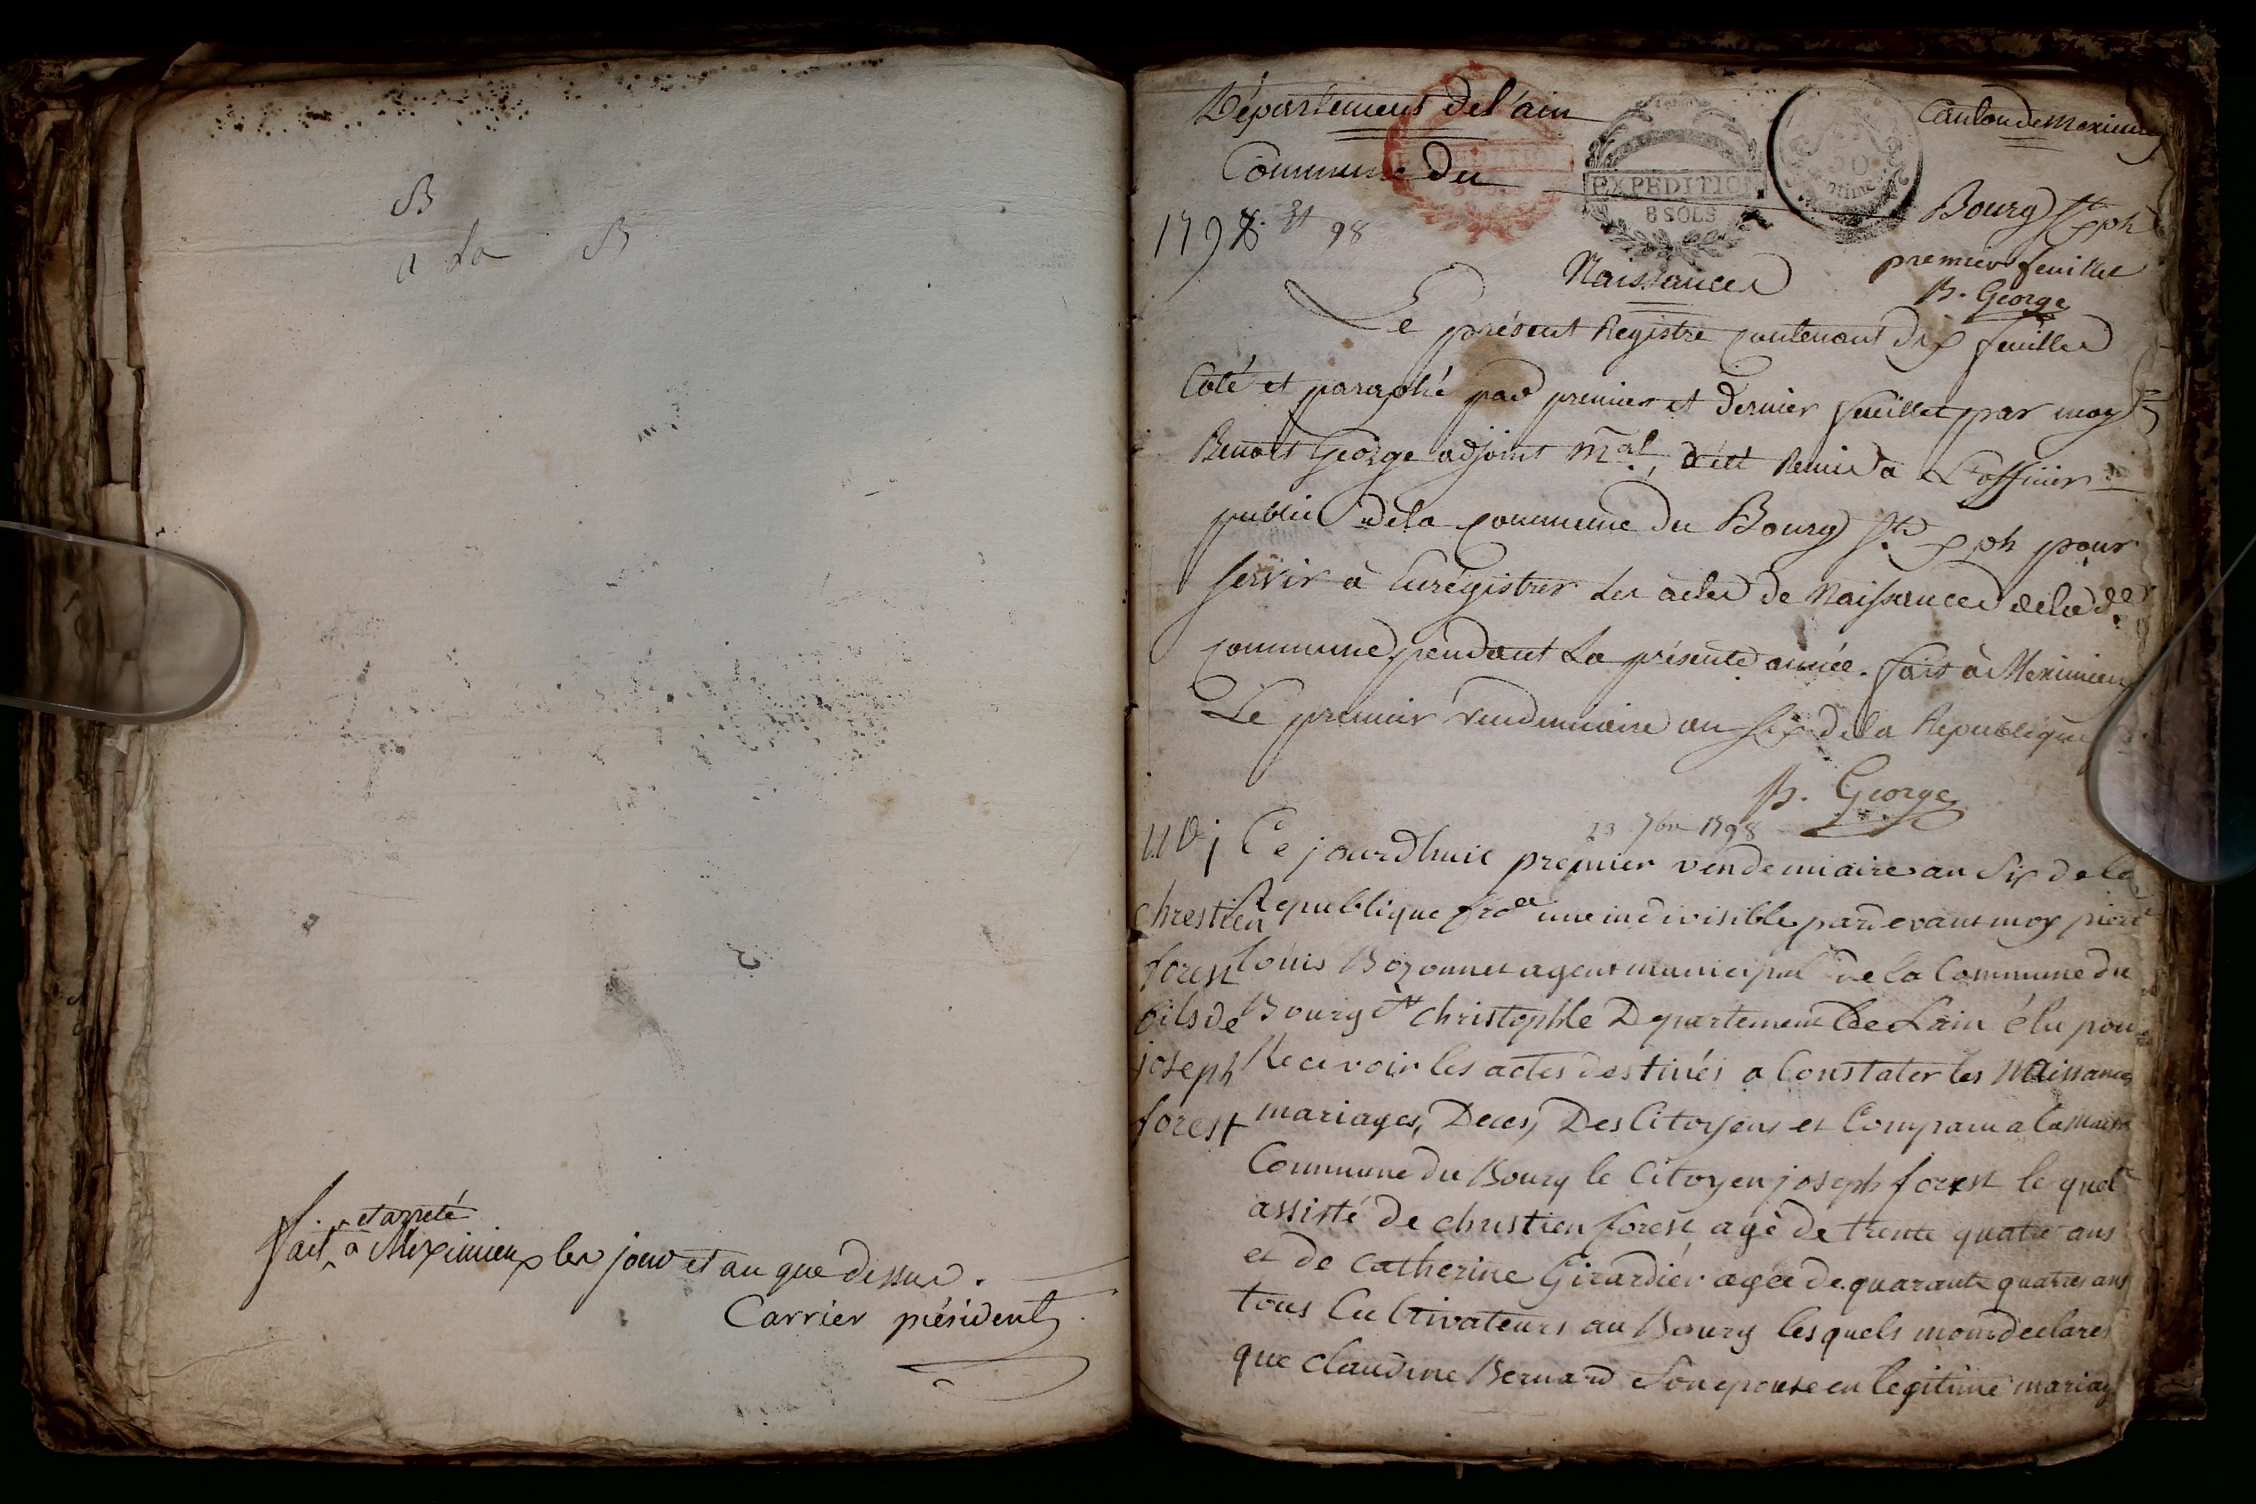 B
a La B
et arreté
fait à Meximieux les jour et an que dessus.
Carrier président
Département de l'ain
Canton de Meximieux
Commune du Bourg St Xph
EXPEDITION
8 SOLS
1797 et 98
Naissances
premier feuillet
B. George
Le présent Registre contenant dix feuilles
Coté et paraphé par premier et dernier feuillet par moy
Benoit George adjoint mal, a été Remis à L'officier
public de la commune du Bourg St Xph pour
servir à Enrégistrer Les actes de Naissances de la de
commune pendant La présente année. fait à Meximieux
Le premier vendemiaire an six de la République
B. George
23 7bre 1798
Ce jourdhuit premier vendemiaire an Six de la
Republique frse une indivisible pardevant moy pierre
Louis Bozonnet agent municipal de la Commune du
Bourg St christophle Departement de Lain élu pour
Recevoir les actes destinés a Constater les Naissances
mariages, Deces, Des Citoyens est Comparu a la maison
Commune du Bourg le Citoyen joseph forest le quel
assisté de chrestien forest agé de trente quatre ans
et de Catherine Girardier agée de quarante quatres ans
tous Cultivateurs au Bourg lesquels mont declares
que claudine Bernard Son epouse en legitime mariage
chrestien
forest
fils de
joseph
forest